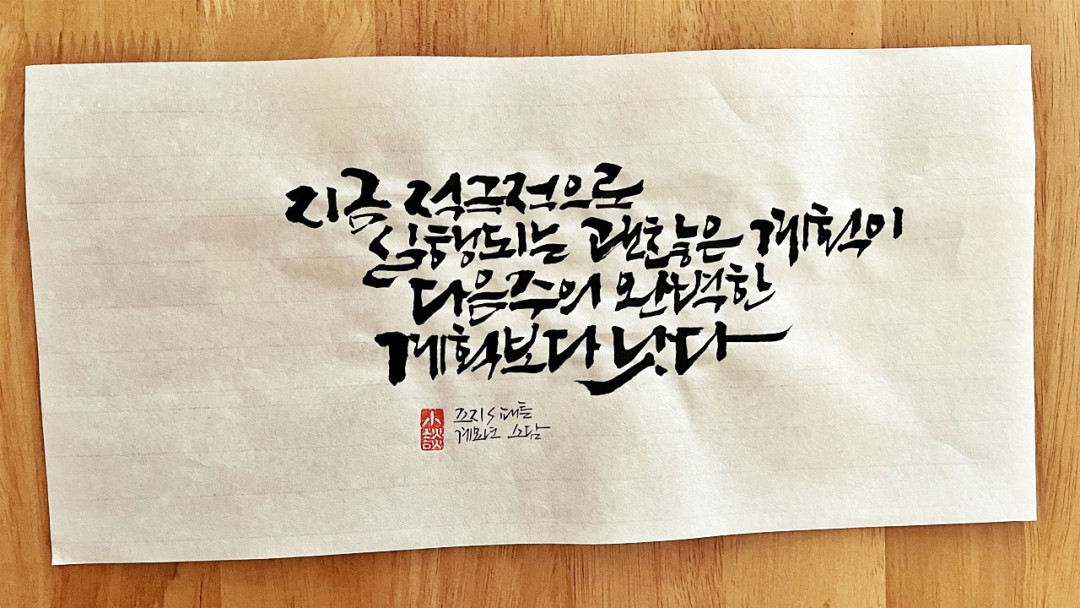 지금 적극적으로
실행되는 괜찮은 계획이
다음주의 완벽한
계획보다 낫다
小談
죠지 S 패튼
계묘년 소담